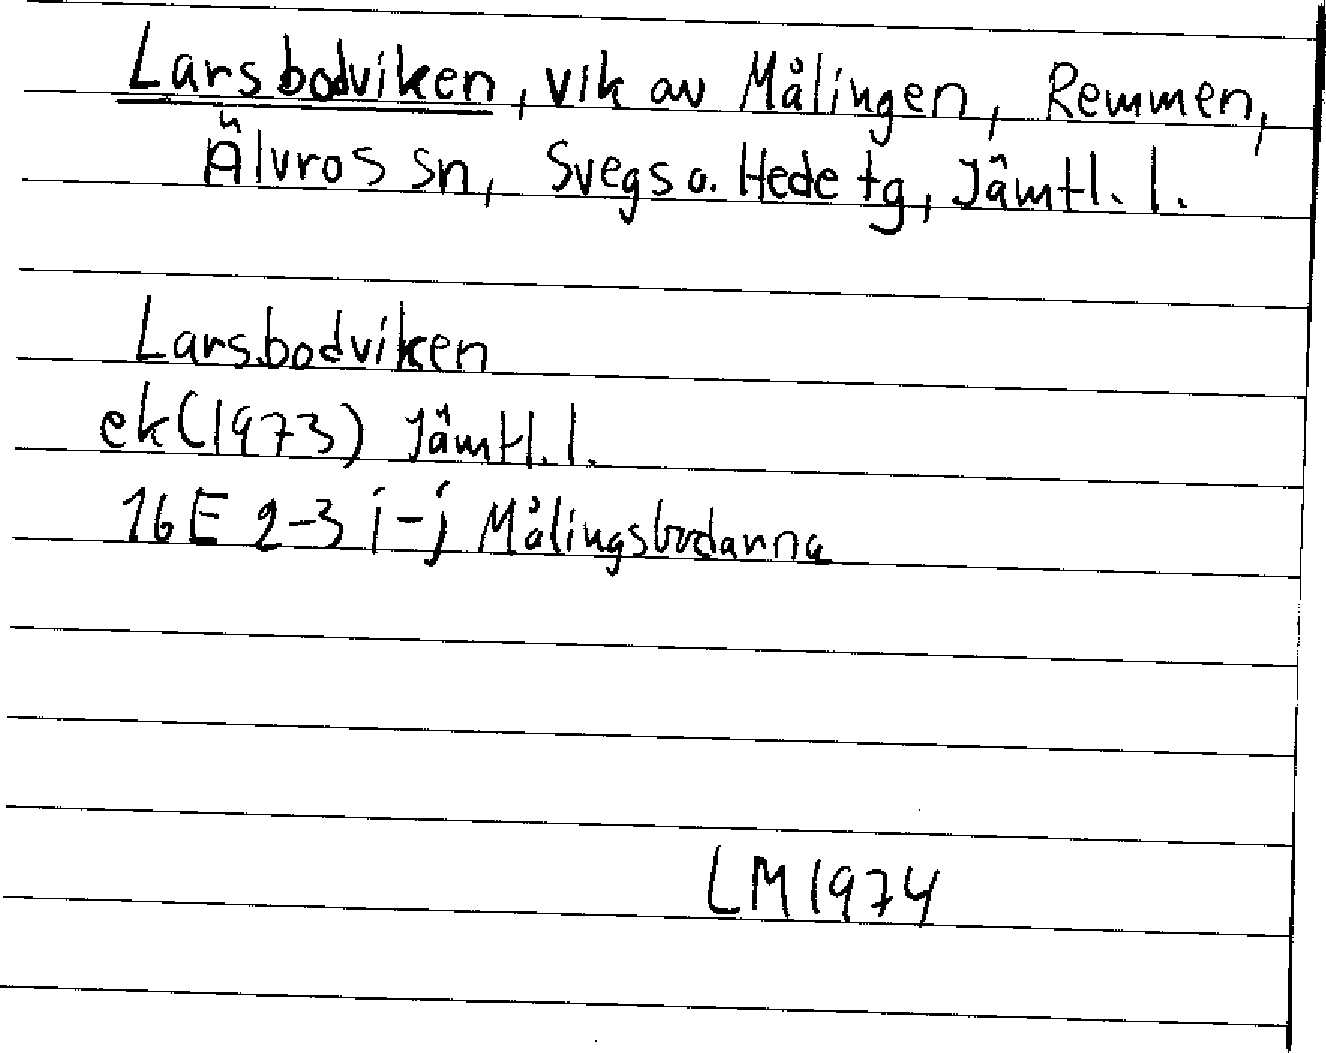 Larsbodviken, vik av Målingen, Remmen,
Älvros sn, Svegs o. Hede tg, Jämtl. l.
Larsbodviken
ek (1973) Jämtl. l.
16E 2-3 i-j Målingsbodarna
LM 1974